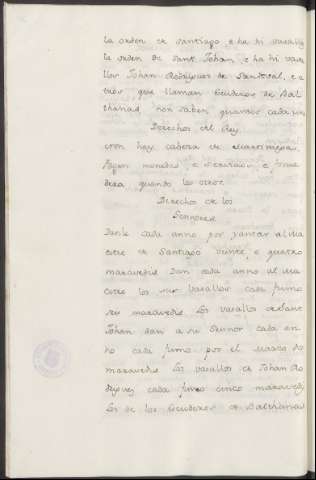 la orden de Santiago, e ha hi vasallos
la orden de Sant Johan, e ha hi vasa
llos Johan Rodriguez de Sandoval, e a
tales que llaman Escuderos de Bal
thanas, non saben quantos cada un
Derechos del Rey
non hay cabeza de Martiniega.
Pagan monedas e servicios e fonsa
dera quando los otros.
Derechos de los
Sennores
Danle cada anno por yantar al Ma
estre de Santiago veinte, e quatro
maravedis Dan cada anno al Ma
estre los sus vasallos cada fumo
seis maravedis. Los vasallos de Sant
Johan dan a su Sennor cada an
no cada fumo por el marzo do
maravedis Los vasallos de Johan Ro
driguez cada fumo cinco maravedis
Los de los Escuderos de Balthanas